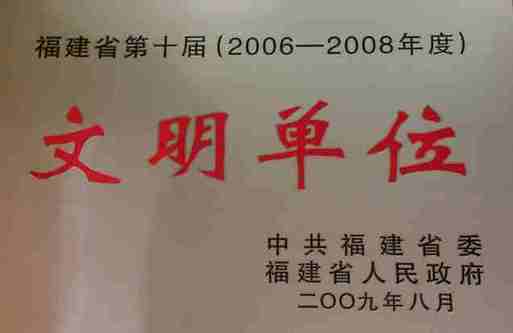 福建省第十届(2006—2008年度)
文明单位
中共福建省委
福建省人民政府
二〇〇九年八月